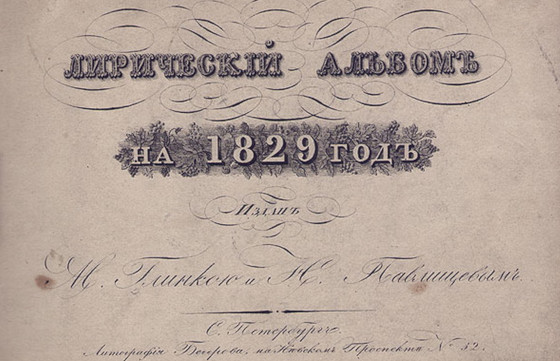 ЛИРИЧЕСКІЙ АЛЬБОМЪ
НА 1829 ГОДЪ
Изданъ
М. Глинкою и Н. Павлищевымъ.
С. Петербургъ.
Литографія Бегерова, на Невскомъ Проспектѣ № 52.